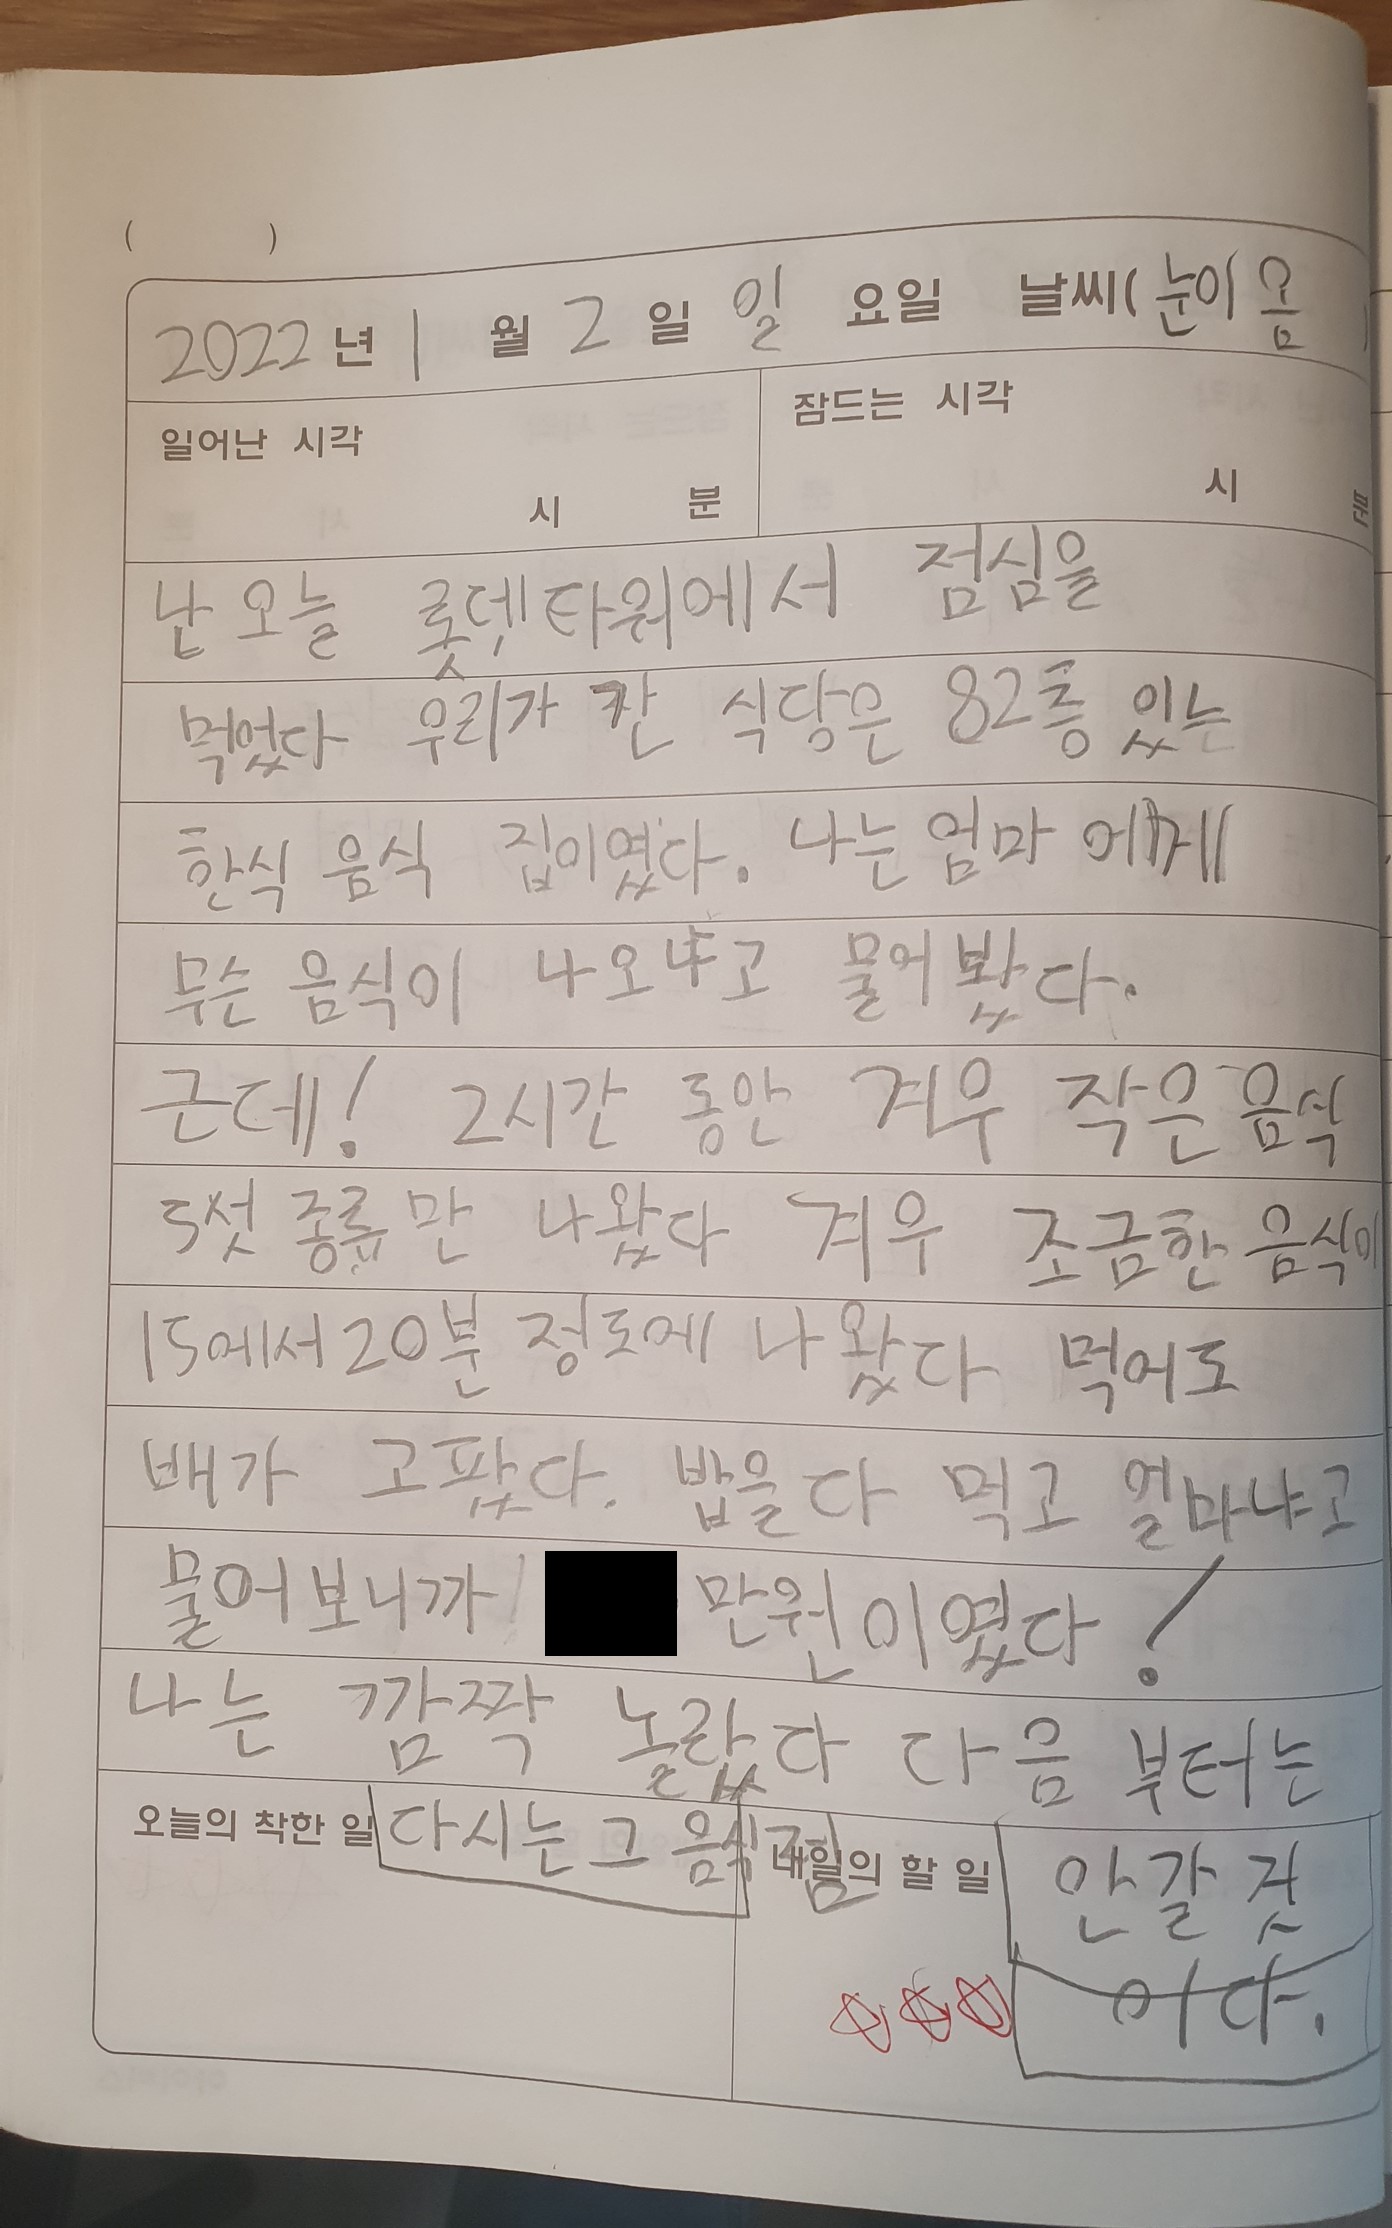 (          )
2022 년 1 월 2 일 일 요일 날씨( 눈이 옴 )
일어난 시각 잠드는 시각
시 분 시 분
난 오늘 롯뎃타워에서 점심을
먹었다 우리가 간 식당은 82층 있는
한식 음식 집이였다. 나는 엄마 에게
무슨 음식이 나오냐고 물어봤다.
근데! 2시간 동안 겨우 작은 음식
5섯 종류만 나왔다 겨우 조금한 음식이
15에서 20분 정도에 나왔다 먹어도
배가 고팠다. 밥을 다 먹고 얼마냐고
물어보니까 만원이였다!
나는 깜짝 놀랐다 다음 부터는
오늘의 착한 일 다시는 그 음식집 내일의 할 일 안갈 것
이다.